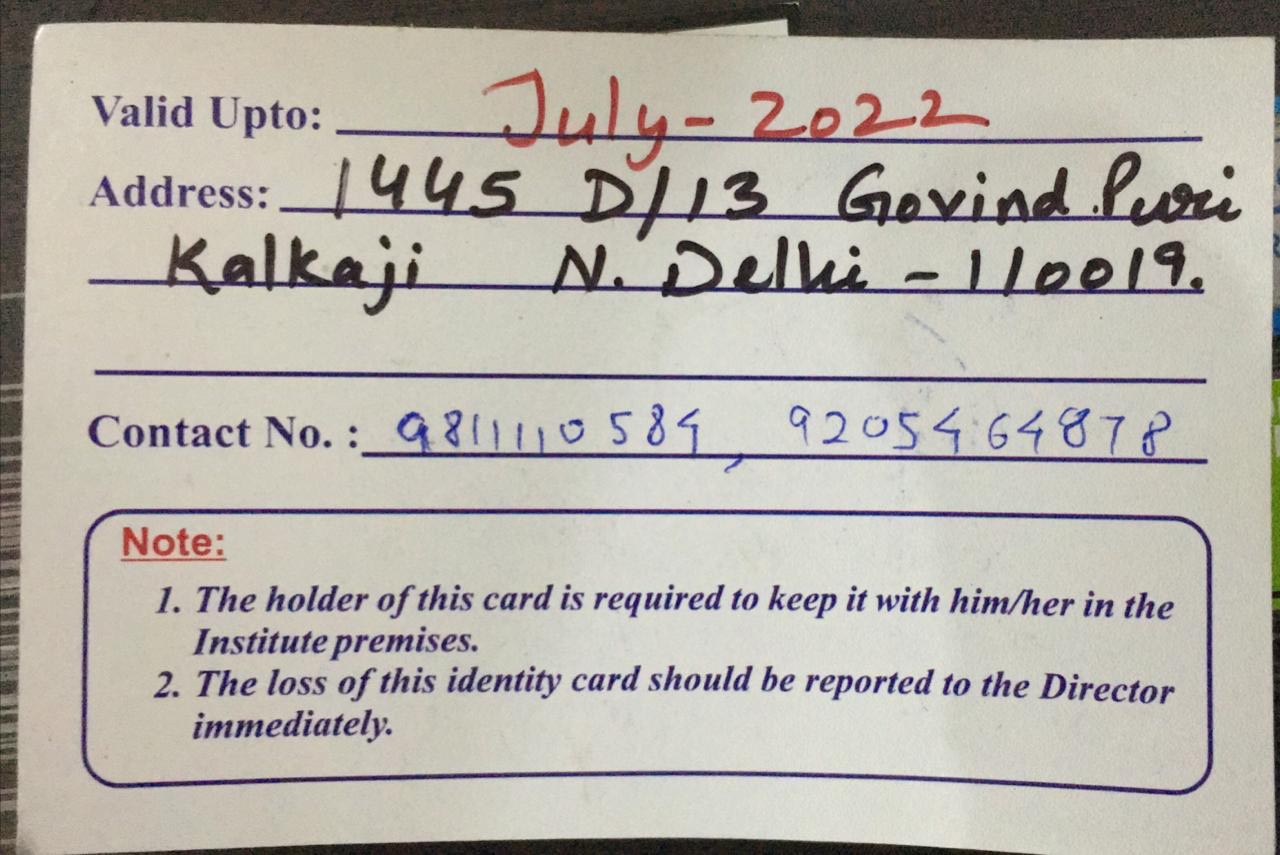 Valid Upto: July - 2022
Address: 1445 D/13 Govind Puri
Kalkaji N. Delhi - 110019.
Contact No. : 9811110584, 9205464878
Note:
1. The holder of this card is required to keep it with him/her in the
Institute premises.
2. The loss of this identity card should be reported to the Director
immediately.